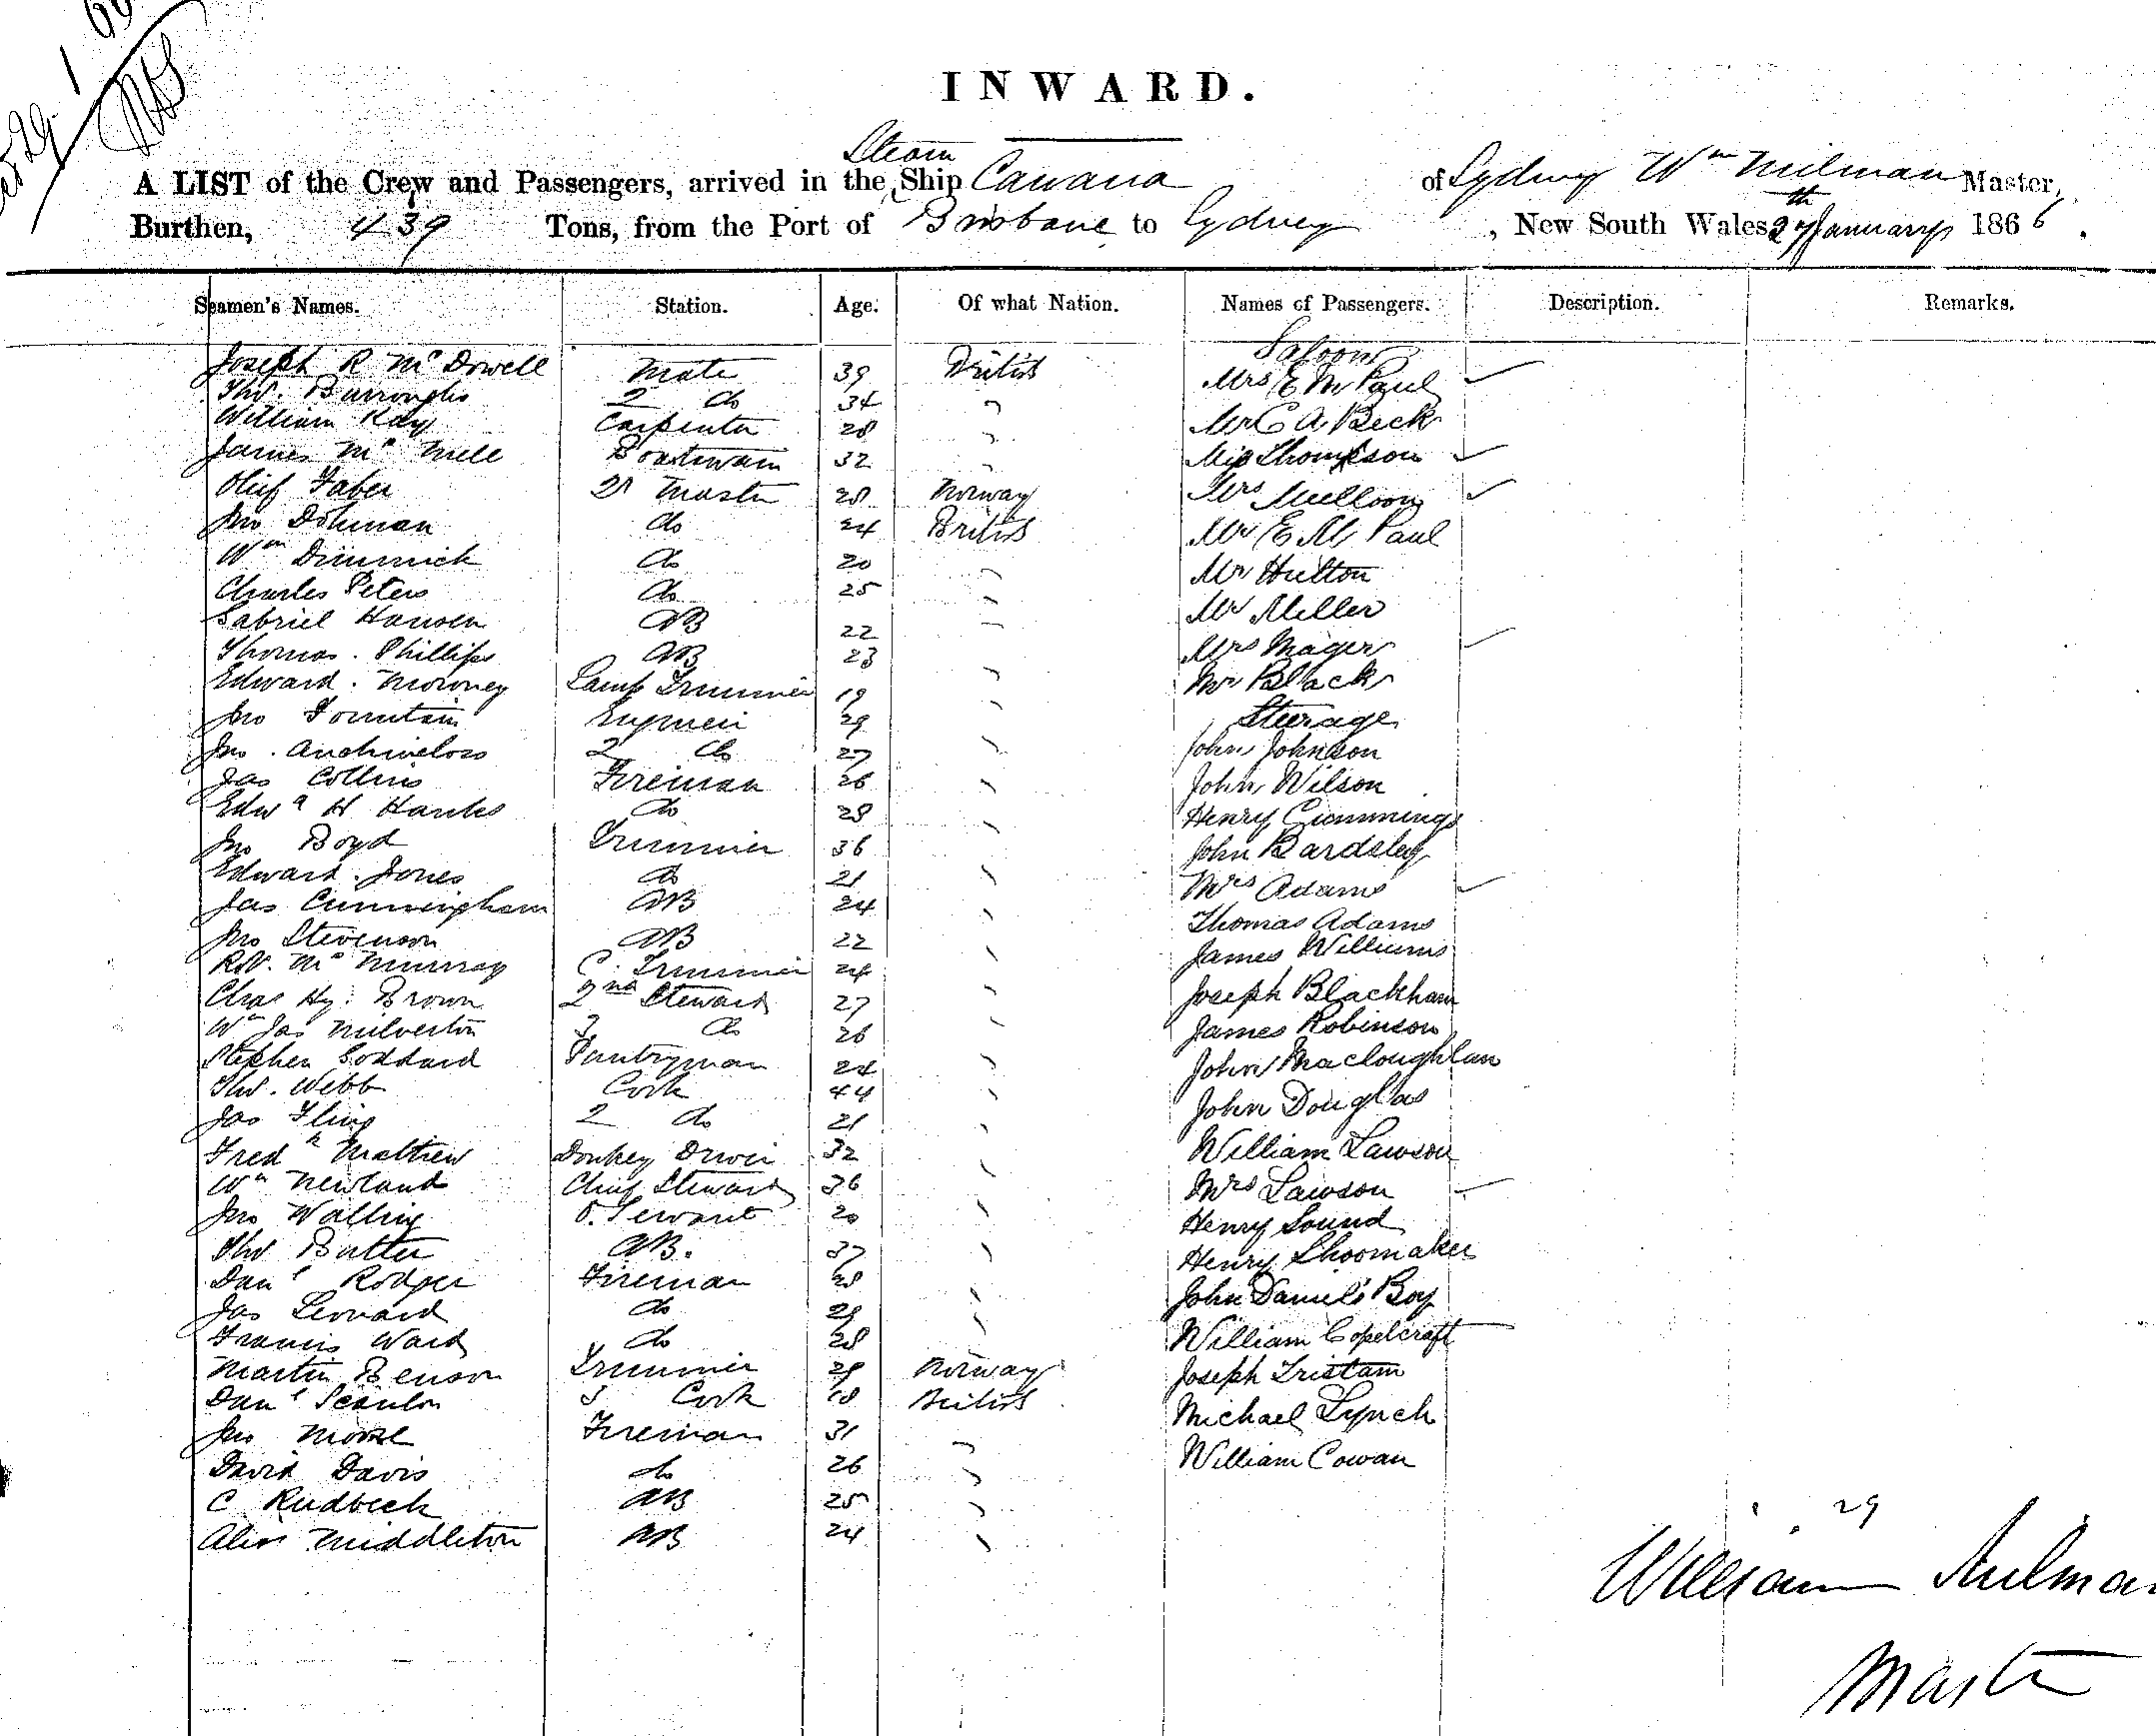 INWARD.
Steam
A LIST of the Crew and Passengers, arrived in the Ship Cawarra of Sydney Wm Milman Master,
Burthen, 439 Tons, from the Port of Brisbane to Sydney, New South Wales 27th January 1866.
Seamen's Names. Station. Age. Of what Nation. Names of Passengers. Description. Remarks.
Saloon
Joseph R McDowell Mate 39 British Mrs E M Paul
Thos. Burroughs 2 do 34 " Mr C A Beck
William Kay Carpenter 28 " Miss Thompson
James Mc Boatswain 32 " Mrs
Oluf Faber Qr Master 28 Norway Mr E M Paul
Jno Dohman do 24 British Mr Hutton
Wm Dimmick do 20 " Mr Miller
Charles Peters do 25 " Mrs Mager
Gabriel Hansen AB 22 " Mr Black
Thomas. Phillips AB 23 Steerage
Edward. Mowney Lamp Trimmer 19 " John Johnson
Jno Fountain Engineer 29 " John Wilson
Jno. 2 do 27 " Henry Cummings
Jas Collins Fireman 26 " John Bardsley
Edwd H Hanks do 28 " Mrs Adams
Jno Boyd Trimmer 36 " Thomas Adams
Edward. Jones do 21 " James Williams
Jas Cunningham AB 24 " Joseph Blackham
Jno Stevenson AB 22 " James Robinson
Rot. Mc Murray C. Trimmer 24 " John Macloughlan
Chas Hy. Brown 2nd Steward 27 " John Douglas
Wm Jas Milverton 3 do 26 " William Lawson
Stephen Goddard Pantryman 24 " Mrs Lawson
Thos. Webb Cook 44 " Henry Sound
Jas Fling 2 do 21 " Henry Shoomaker
Fredk Mathew Donkey Driver 32 " John Daniels Boy
Wm Newland Chief Steward 36 " William Copelcraft
Jno Walling O. Servant 20 " Joseph Tristam
Thos Butler AB. 37 " Michael Lynch
Danl Rodger Fireman 28 " William Cowan
Jas Leonard do 29 "
Francis Ward do 28
Martin Benson Trimmer 29 Norway
Danl Scanlon 3 Cook 18 British
Jno Fireman 31 "
David Davis do 26 "
C Rudbeck AB 25 "
Alex Middleton AB 24 "
29
William Milman
Master